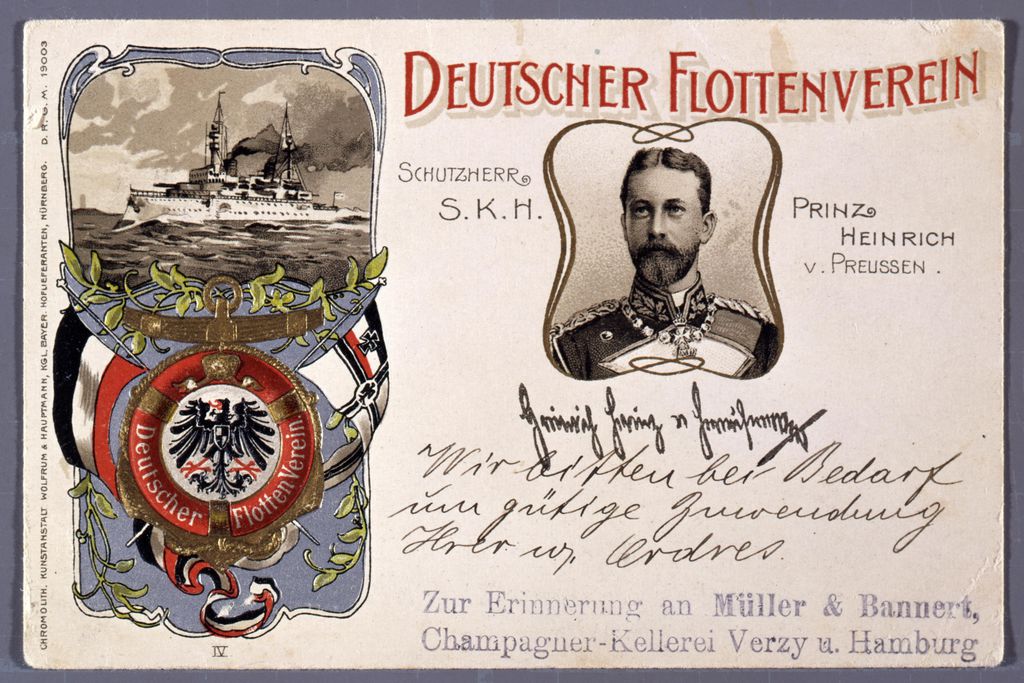 DEUTSCHER FLOTTENVEREIN
SCHUTZHERR
S. K. H.
PRINZ
HEINRICH
v. PREUSSEN.
Heinrich Prinz v Preußen
Wir bitten bei Bedarf
um gütige Zuwendung
Ihrer w. Ordres.
Zur Erinnerung an Müller & Bannert,
Champagner-Kellerei Verzy u. Hamburg
Deutscher
Flotten Verein
IV
CHROMOLITH. KUNSTANSTALT WOLFRUM & HAUPTMANN, KGL. BAYER. HOFLIEFERANTEN, NÜRNBERG. D. R. G. M. 19003